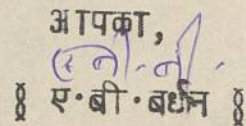 आपका,
ए·बी·बर्धन